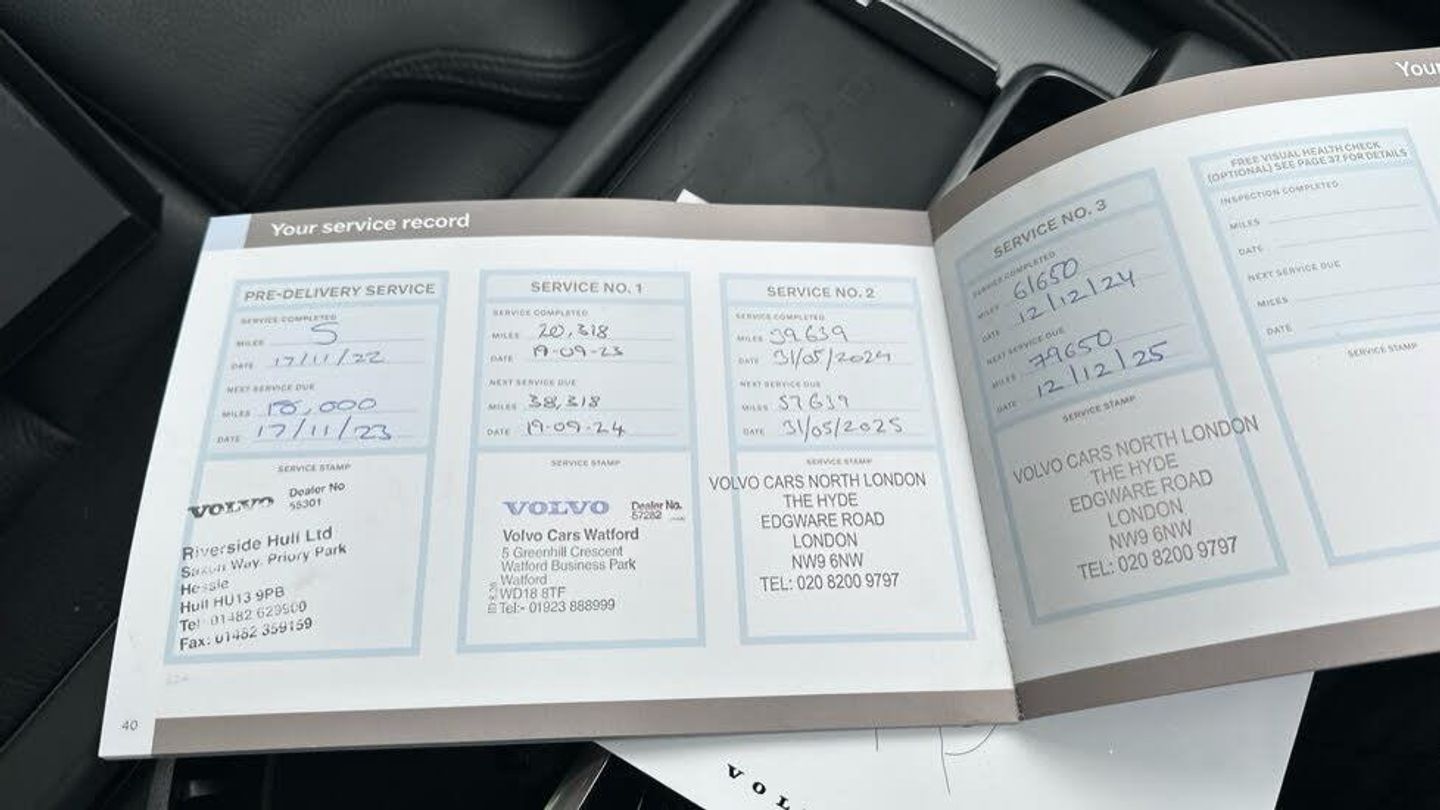 Your service record
PRE-DELIVERY SERVICE
SERVICE COMPLETED
MILES 5
DATE 17/11/22
NEXT SERVICE DUE
MILES 18,000
DATE 17/11/23
SERVICE STAMP
VOLVO Dealer No
55301
Riverside Hull Ltd
Saxon Way, Priory Park
Hessle
Hull HU13 9PB
Tel 01482 629900
Fax: 01482 359159
40
SERVICE NO. 1
SERVICE COMPLETED
MILES 20,318
DATE 19-09-23
NEXT SERVICE DUE
MILES 38,318
DATE 19-09-24
SERVICE STAMP
VOLVO Dealer No.
57282
Volvo Cars Watford
5 Greenhill Crescent
Watford Business Park
Watford
WD18 8TF
Tel:- 01923 888999
SERVICE NO. 2
SERVICE COMPLETED
MILES 39639
DATE 31/05/2024
NEXT SERVICE DUE
MILES 57639
DATE 31/05/2025
SERVICE STAMP
VOLVO CARS NORTH LONDON
THE HYDE
EDGWARE ROAD
LONDON
NW9 6NW
TEL: 020 8200 9797
Your
SERVICE NO. 3
SERVICE COMPLETED
MILES 61650
DATE 12/12/24
NEXT SERVICE DUE
MILES 79650
DATE 12/12/25
SERVICE STAMP
VOLVO CARS NORTH LONDON
THE HYDE
EDGWARE ROAD
LONDON
NW9 6NW
TEL: 020 8200 9797
FREE VISUAL HEALTH CHECK
(OPTIONAL) SEE PAGE 37 FOR DETAILS
INSPECTION COMPLETED
MILES
DATE
NEXT SERVICE DUE
MILES
DATE
SERVICE STAMP
VOL